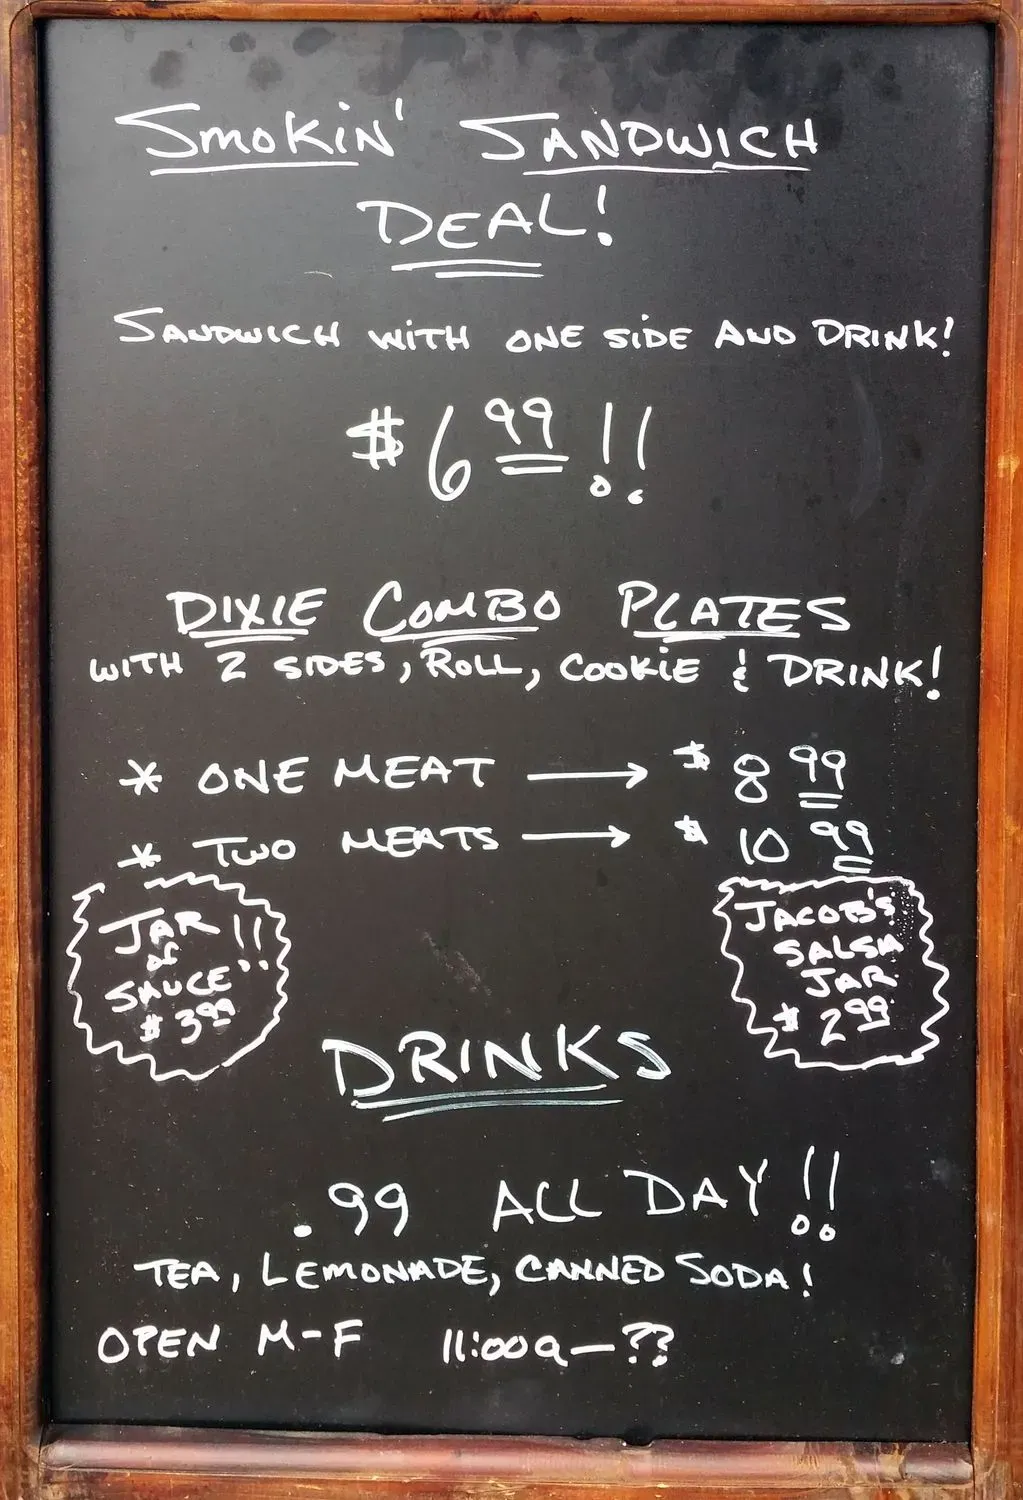 SMOKIN' SANDWICH
DEAL!
SANDWICH WITH ONE SIDE AND DRINK!
$6 99!!
DIXIE COMBO PLATES
WITH 2 SIDES, ROLL, COOKIE & DRINK!
* ONE MEAT → $8 99
* TWO MEATS → $10 99
JAR!!
OF
SAUCE
$3 99
JACOB'S
SALSA
JAR
$2 99
DRINKS
.99 ALL DAY!!
TEA, LEMONADE, CANNED SODA!
OPEN M-F 11:00a—??